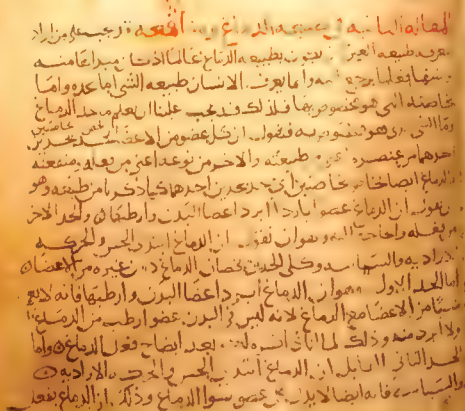 المقالة الثانية في طبيعة الدماغ ومنفعته قد يجب على من اراد
معرفة طبيعة العين ان يكون بطبيعة الدماغ عالما اذ كان مبدأها منه
ومنتهى فعلها يرجع اليه وانما يعرف الانسان طبيعة الشي اما بحده واما
بخاصته التي هو مخصوص بها فلذلك قد يجب علينا ان نعلم ما حد الدماغ
وما الشي الذي هو مخصوص به فنقول ان كل عضو من الاعضا يحد بحدين
احدهما من عنصره اعني من طبيعته والاخر من فعله اعني من فعله ومنفعته
والدماغ ايضا خاصتان احدهما كما ذكرنا من طبيعته وهو
ان نقول ان الدماغ عضو ابرد اعضا البدن وارطبها والحد الاخر
من فعله وهو ان نقول ان الدماغ ابتدا الحس والحركة
الارادية والسياسة وكلى الحدين يخصان الدماغ دون غيره من الاعضا
اما الحد الاول وهو ان الدماغ ابرد اعضا البدن وارطبها فانه لا يعم
شيئا من الاعضا مع الدماغ لانه ليس في البدن عضو ارطب من الدماغ
ولا ابرد منه وذلك لما انا ذاكره بعد ايضاح فعل الدماغ واما
الحد الثاني القايل ان الدماغ ابتدا الحس والحركة الارادية
والسياسة فانه ايضا لا يدل على عضو سوا الدماغ وذلك ان الدماغ يفعل